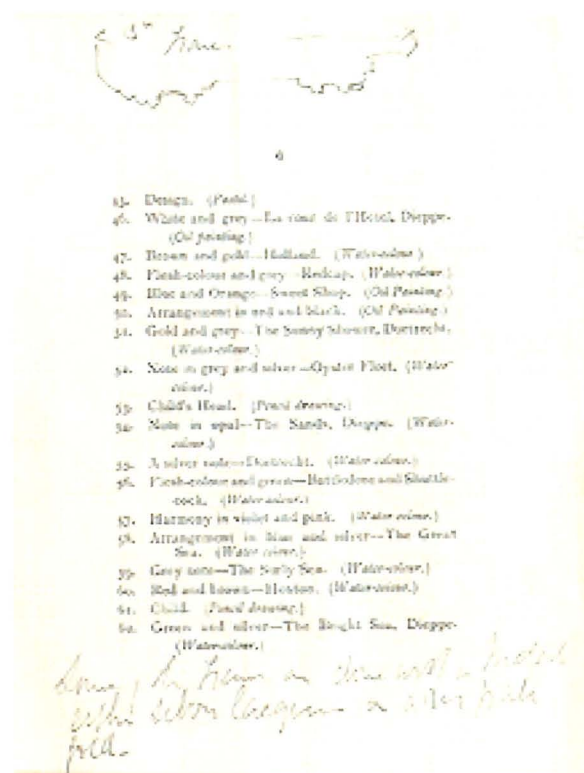 6
45. Design. (Pastel.)
46. White and grey—La cour de l'Hotel, Dieppe.
(Oil painting.)
47. Brown and gold—Holland. (Water-colour.)
48. Flesh-colour and grey—Redcap. (Water-colour.)
49. Blue and Orange—Sweet Shop. (Oil Painting.)
50. Arrangement in red and black. (Oil Painting.)
51. Gold and grey—The Sunny Shower, Dordrecht.
(Water-colour.)
52. Note in grey and silver—Oyster Fleet. (Water-
colour.)
53. Child's Head. (Pencil drawing.)
54. Note in opal—The Sands, Dieppe. (Water-
colour.)
55. A silver note—Dordrecht. (Water colour.)
56. Flesh-colour and green—Battledore and Shuttle-
cock. (Water colour.)
57. Harmony in violet and pink. (Water colour.)
58. Arrangement in blue and silver—The Great
Sea. (Water colour.)
59. Grey note—The Surly Sea. (Water-colour.)
60. Red and brown—Hoxton. (Water-colour.)
61. Child. (Pencil drawing.)
62. Green and silver—The Bright Sea, Dieppe.
(Water-colour.)